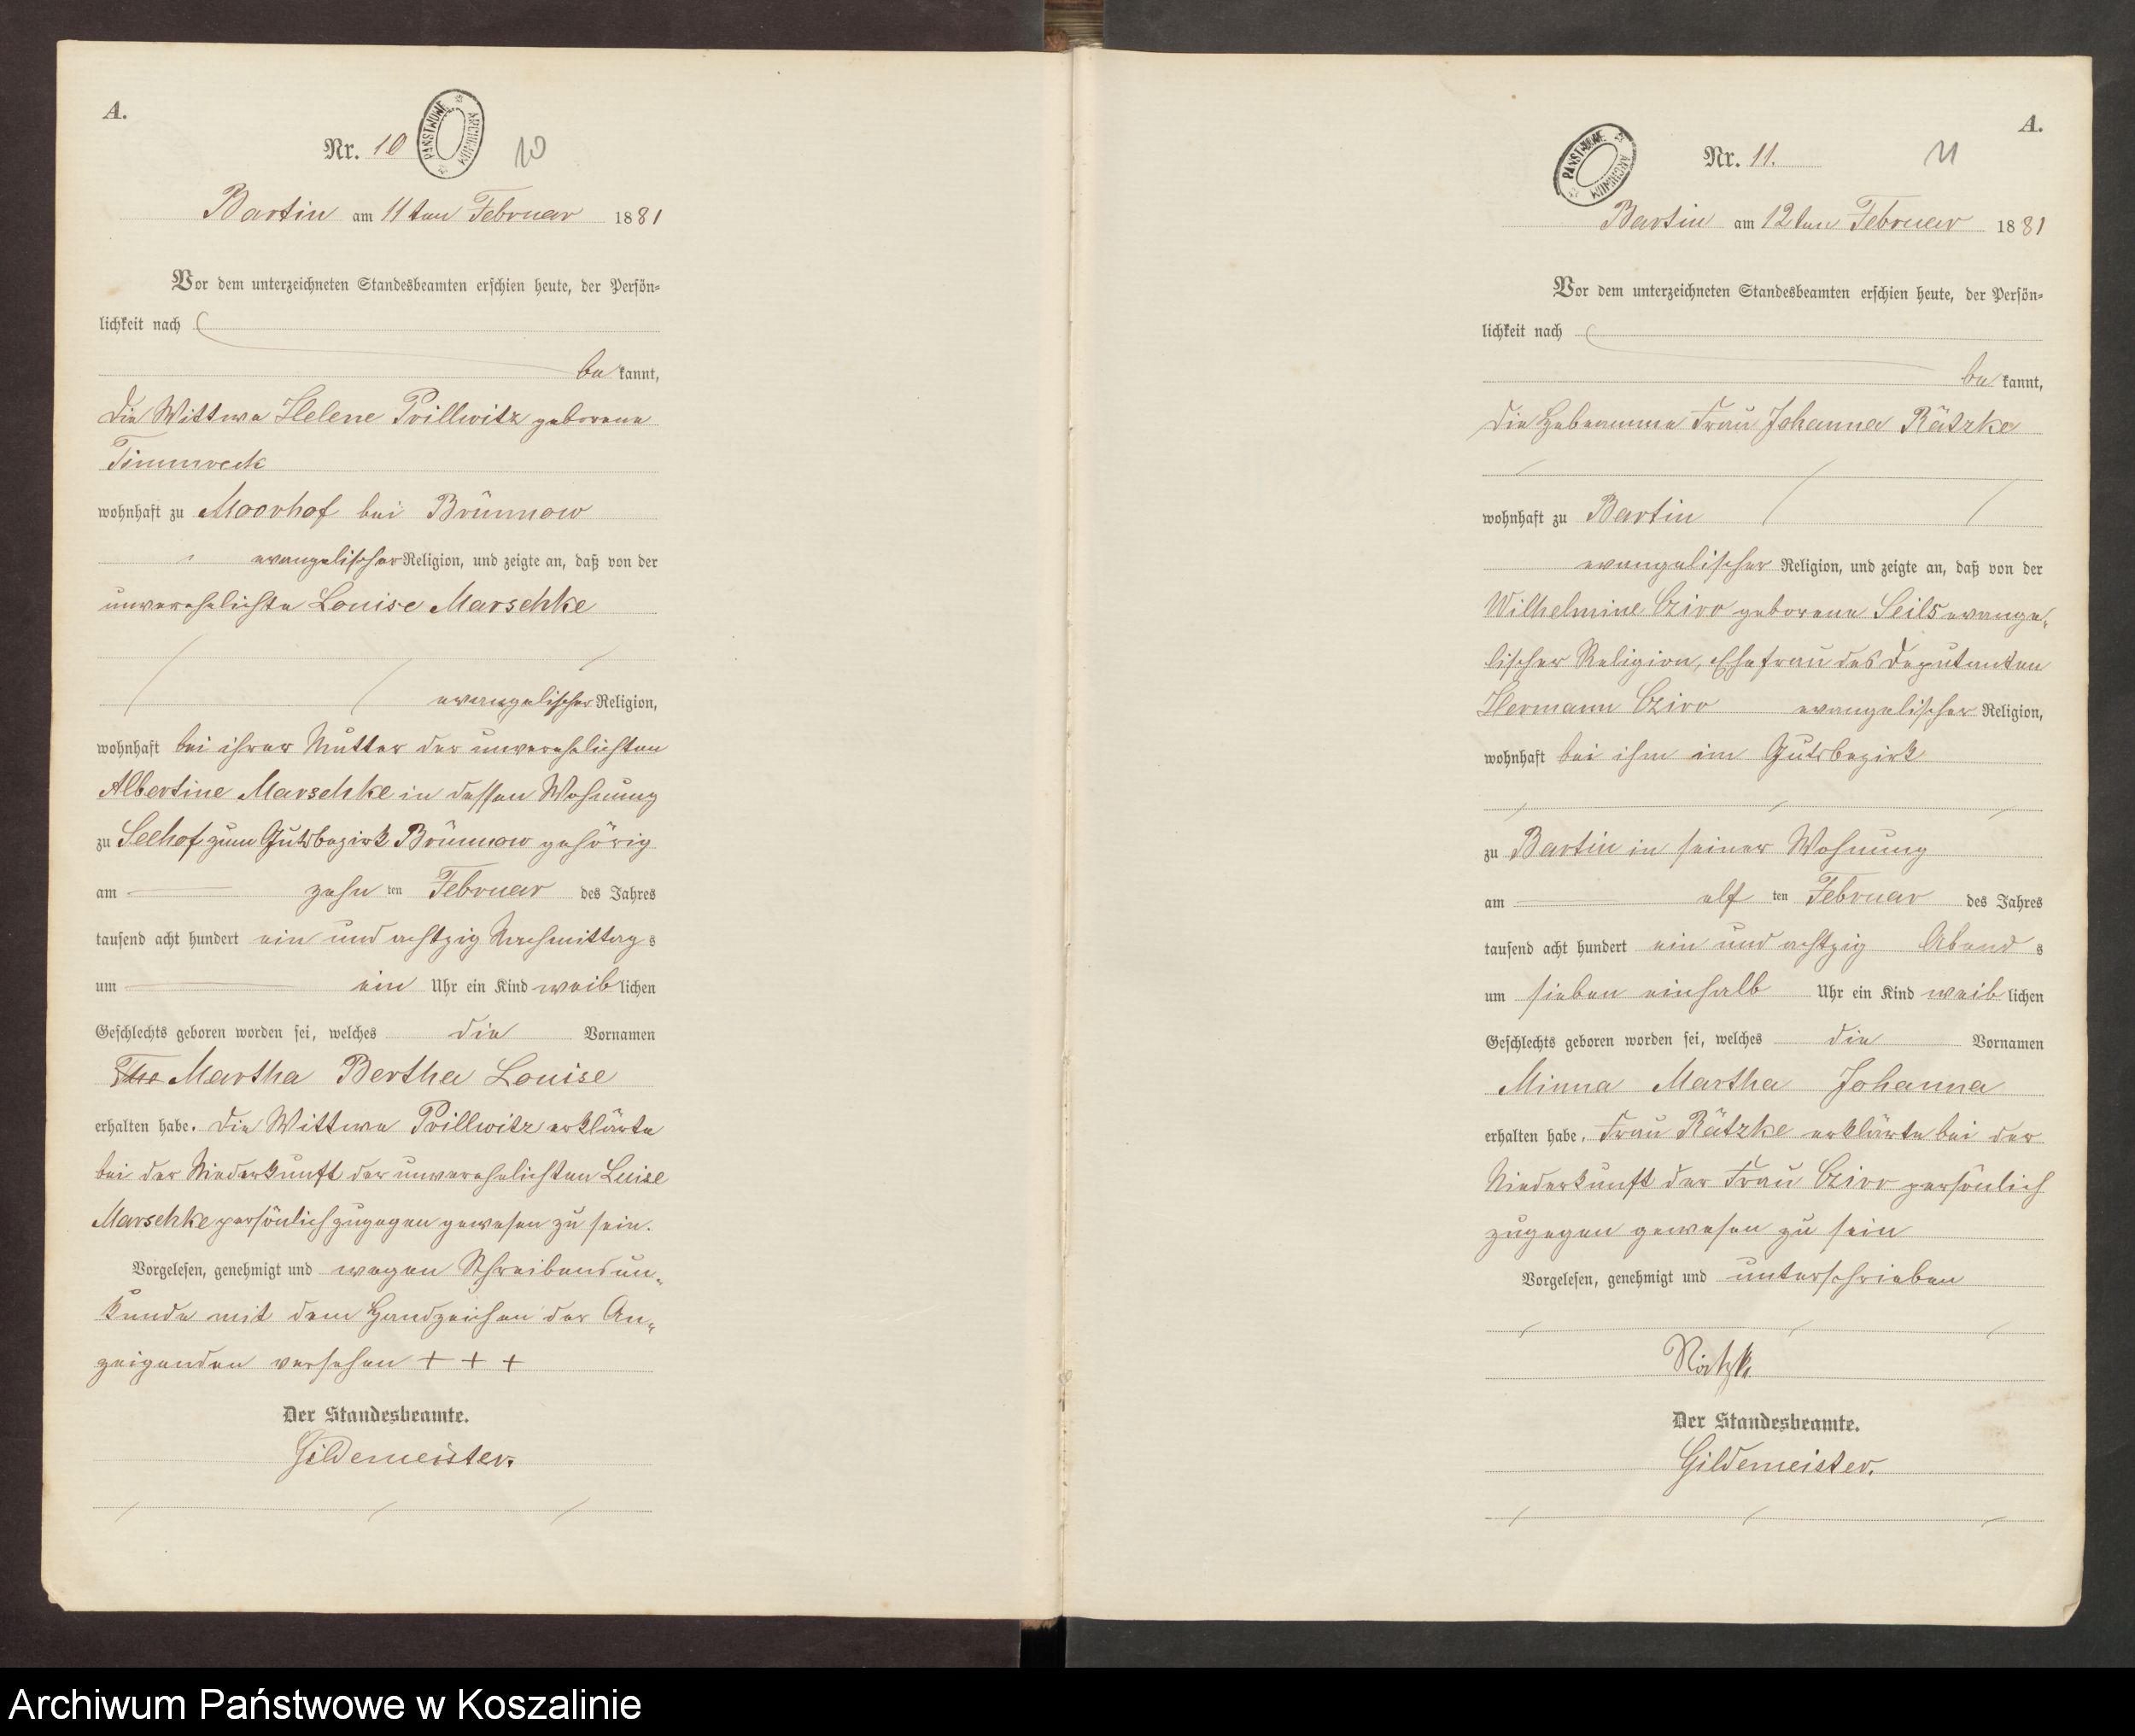 A.
Nr. 10
PAŃSTWOWE ARCHIWUM
10
Bartin am 11ten Februar 1881
Vor dem unterzeichneten Standesbeamten erschien heute, der Persön=
lichkeit nach
bekannt,
die Wittwe Helene Prillwitz geborene
Timmreck
wohnhaft zu Moorhof bei Brünnow
evangelischer Religion, und zeigte an, daß von der
unverehelichte Louise Marschke
evangelischer Religion,
wohnhaft bei ihrer Mutter der unverehelichten
Albertine Marschke in dessen Wohnung
zu Seehof zum Gutsbezirk Brünnow gehörig
am zehn ten Februar des Jahres
tausend acht hundert ein und achtzig Nachmittags
um ein Uhr ein Kind weiblichen
Geschlechts geboren worden sei, welches die Vornamen
Martha Bertha Louise
erhalten habe. Die Wittwe Prillwitz erklärte
bei der Niederkunft der unverehelichten Luise
Marschke persönlich zugegen gewesen zu sein.
Vorgelesen, genehmigt und wegen Schreibensun-
kunde mit dem Handzeichen der An-
zeigenden versehen + + +
Der Standesbeamte.
Gildemeister.
A.
PAŃSTWOWE ARCHIWUM
Nr. 11.
11
Bartin am 12ten Februar 1881
Vor dem unterzeichneten Standesbeamten erschien heute, der Persön=
lichkeit nach
bekannt,
die Hebeamme Frau Johanna Rätzke
wohnhaft zu Bartin
evangelischer Religion, und zeigte an, daß von der
Wilhelmine Cziro geborene Seils evange-
lischer Religion, Ehefrau des Deputanten
Hermann Cziro evangelischer Religion,
wohnhaft bei ihm im Gutsbezirk
zu Bartin in seiner Wohnung
am elf ten Februar des Jahres
tausend acht hundert ein und achtzig Abends
um sieben einhalb Uhr ein Kind weiblichen
Geschlechts geboren worden sei, welches die Vornamen
Minna Martha Johanna
erhalten habe. Frau Rätzke erklärte bei der
Niederkunft der Frau Cziro persönlich
zugegen gewesen zu sein
Vorgelesen, genehmigt und unterschrieben
Rätzke
Der Standesbeamte.
Gildemeister.
Archiwum Państwowe w Koszalinie